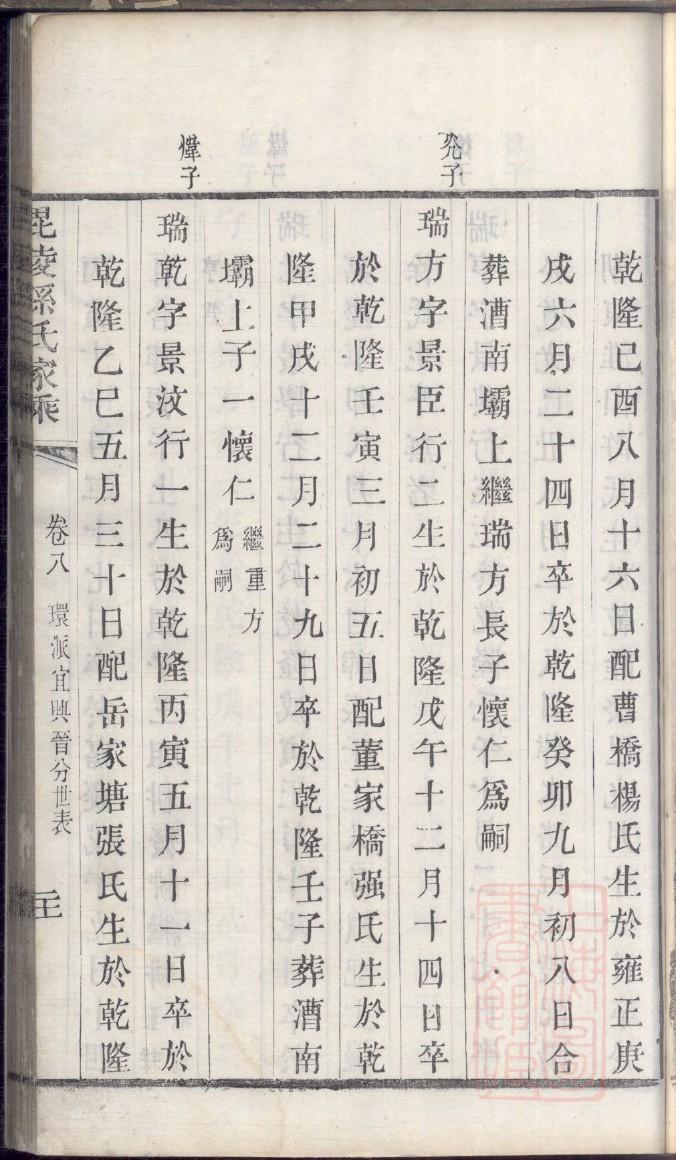 乾隆己酉八月十六日配曹橋楊氏生於雍正庚
戌六月二十四日卒於乾隆癸卯九月初八日合
葬漕南壩上繼瑞方長子懷仁爲嗣
兊子
瑞方字景臣行二生於乾隆戊午十二月十四日卒
於乾隆壬寅三月初五日配董家橋强氏生於乾
隆甲戌十二月二十九日卒於乾隆壬子葬漕南
壩上子一懷仁繼重方爲嗣
愇子
瑞乾字景汶行一生於乾隆丙寅五月十一日卒於
乾隆乙巳五月三十日配岳家塘張氏生於乾隆
毘陵孫氏家乘
卷八 環派宜興晉分世表